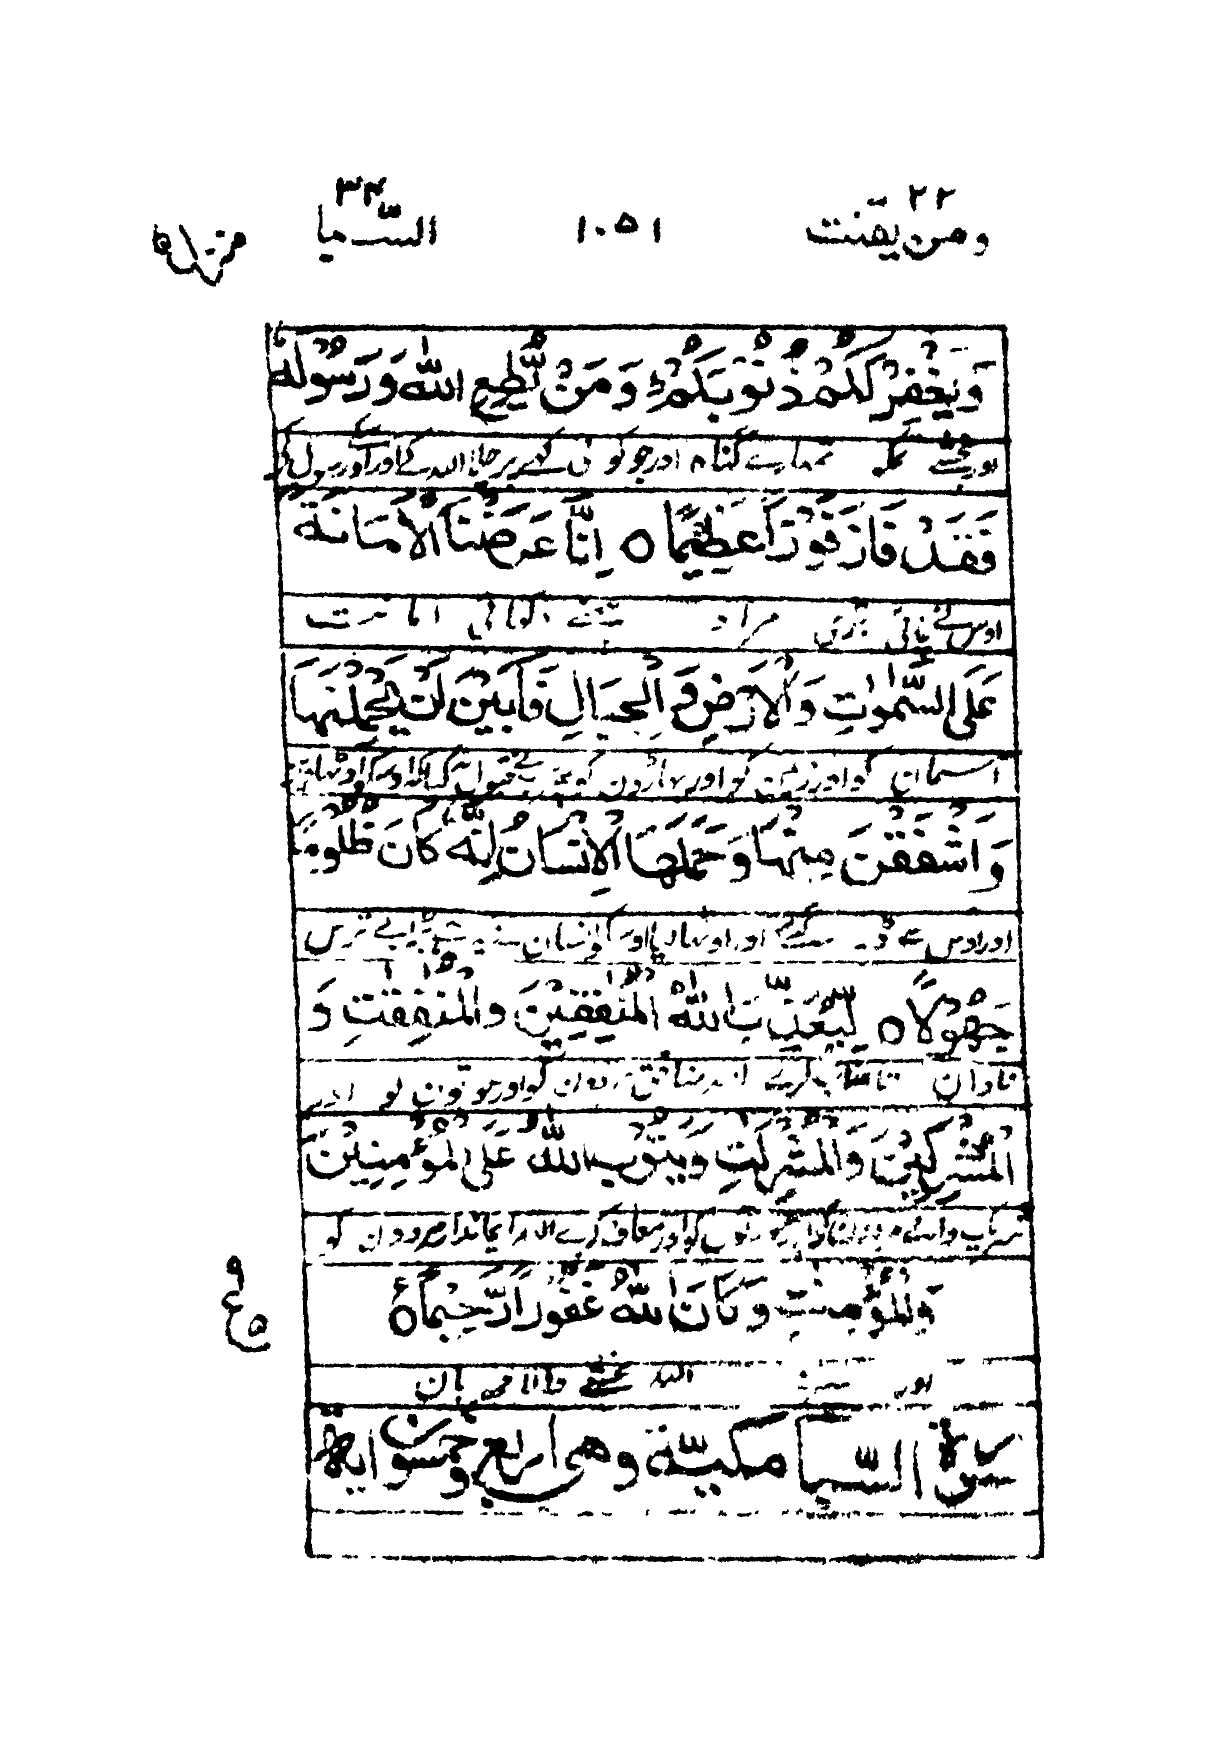 ٢٢ ٣٤
ومن يقنت ١٠٥١ السّبا منزل ٥
وَيَغْفِرْ لَكُمْ ذُنُوْبَكُمْ وَمَنْ يُّطِعِ اللّٰهَ وَرَسُوْلَهٗ
اور بخشے تمہارے گناہ اور جو کوئی کہے پر چلا اللہ کے اور اور رسول کے
فَقَدْ فَازَ فَوْزًا عَظِيْمًا ٥ اِنَّا عَرَضْنَا الْاَمَانَةَ
اوس نے پائی بڑی مراد ہمنے دکھائی امانت
عَلَى السَّمٰوٰتِ وَالْاَرْضِ وَ الْجِبَالِ فَاَبَيْنَ اَنْ يَّحْمِلْنَهَا
آسمان کو اور زمین کو اور پہاڑون کو
وَاَشْفَقْنَ مِنْهَا وَحَمَلَهَا الْاِنْسَانُ اِنَّهٗ كَانَ ظَلُوْمًا
اور اوس سے ڈر گئے اور اوٹھا لیا اوسکو انسان نے یہ ہے بڑا بے ترس
جَهُوْلًا ٥ لِّيُعَذِّبَ اللّٰهُ الْمُنٰفِقِيْنَ وَالْمُنٰفِقٰتِ وَ
نادان تا عذاب کرے اللہ منافق مردون کو اور عورتون کو اور
الْمُشْرِكِيْنَ وَالْمُشْرِكٰتِ وَيَتُوْبَ اللّٰهُ عَلَى الْمُؤْمِنِيْنَ
شریک والے اور عورتوں کو اور معاف کرے اللہ ایماندار مردون کو
وَالْمُؤْمِنٰتِ وَكَانَ اللّٰهُ غَفُوْرًا رَّحِيْمًا ٥
٩
ع
٥
اور اللہ بخشنے والا مہربان
سورة السبا مكيّة وهي اربع وخمسون اية